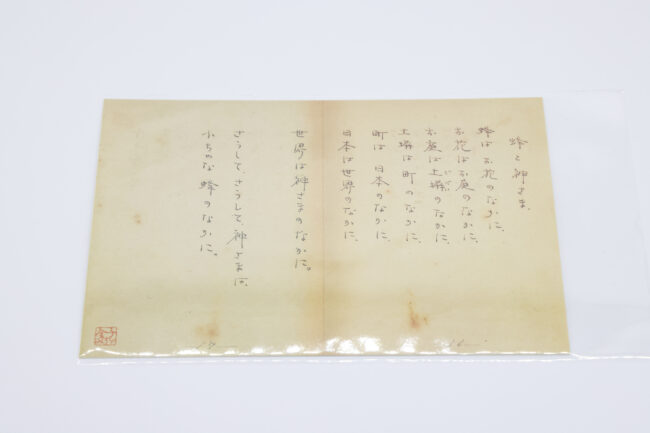 蜂と神さま
蜂はお花のなかに、
お花はお庭のなかに、
お庭は土塀のなかに、
どべい
土塀は町のなかに、
町は日本のなかに、
日本は世界のなかに、
世界は神さまのなかに。
さうして、さうして、神さまは、
小ちゃな蜂のなかに。
16
17